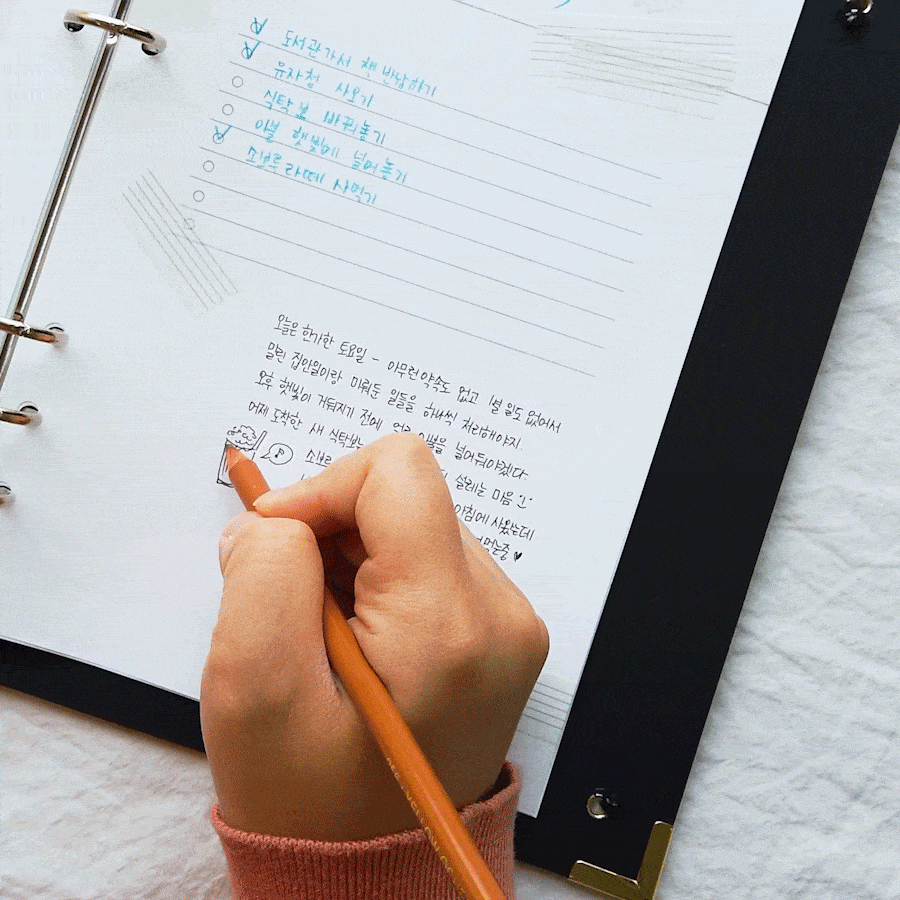 도서관 가서 책 반납하기
유자청 사오기
식탁보 바꿔놓기
이불 햇빛에 널어놓기
소보르 라떼 사먹기
오늘은 한가한 토요일 - 아무런 약속도 없고 별 일도 없어서
밀린 집안일이랑 미뤄둔 일들을 하나씩 처리해야지.
오후 햇빛이 거둬지기 전에 이불을 널어둬야겠다.
어제 도착한 새 식탁보 설레는 마음 :)
소보르 아침에 사왔는데
♥